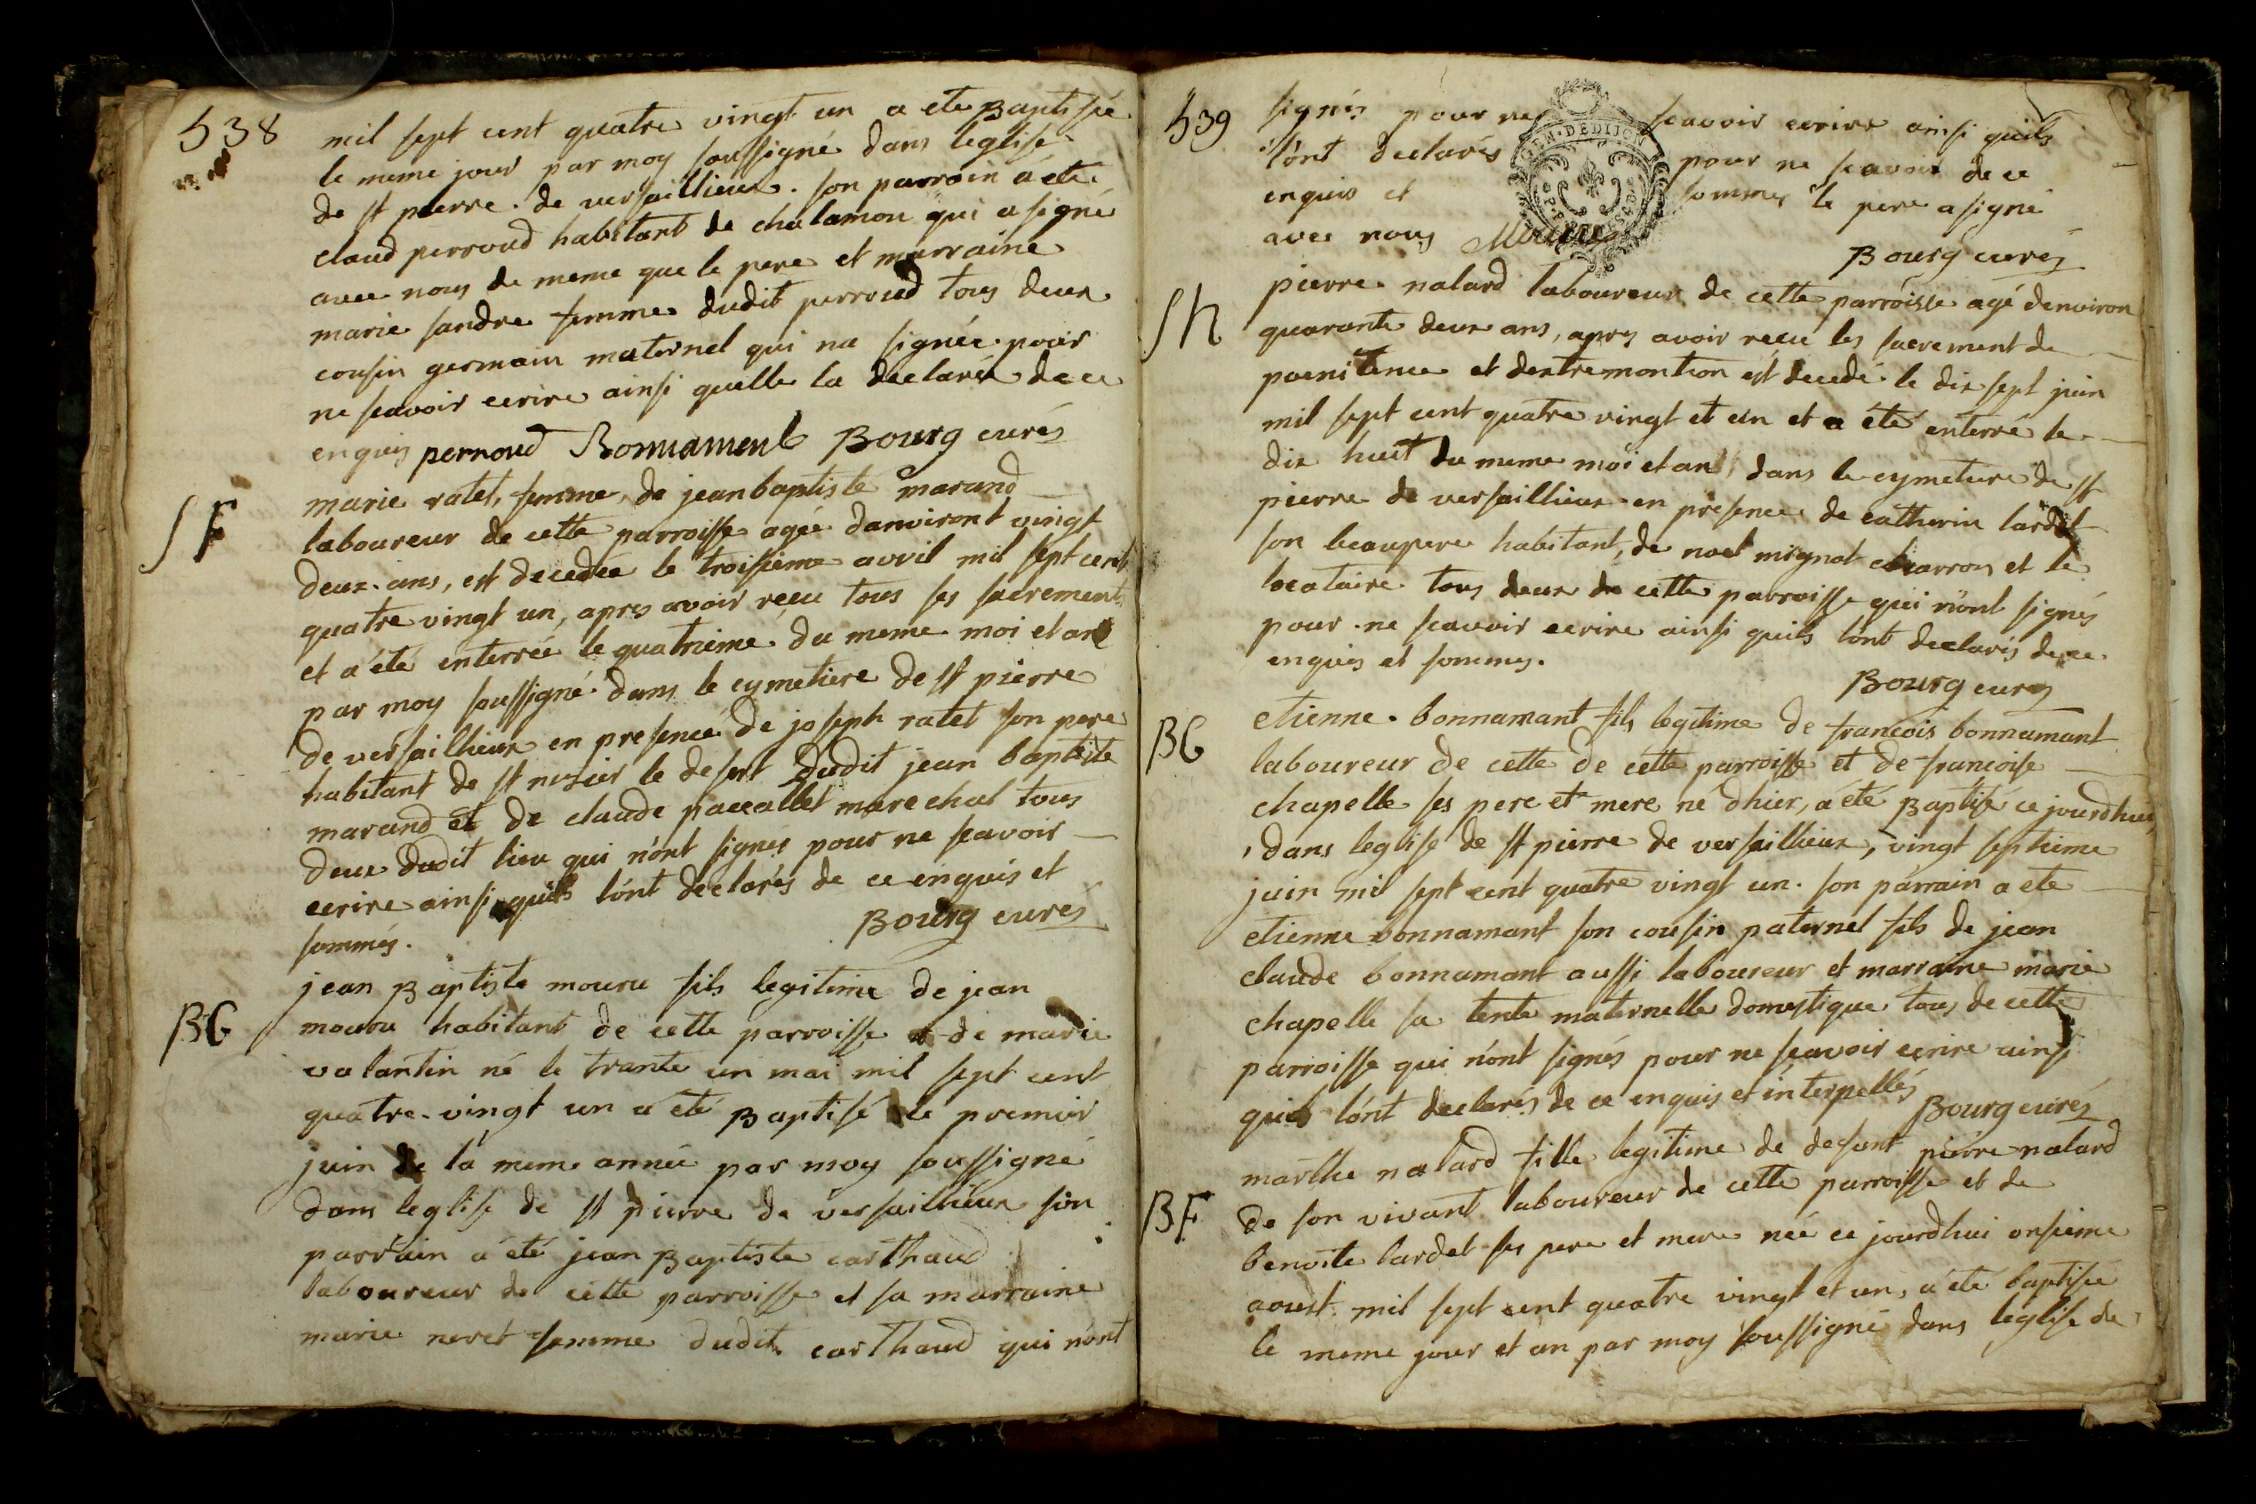 538
mil sept cent quatre vingt un a ete Baptisée
le meme jour par moy soussigné dans leglise
de st pierre de versaillieux. son parrain á éte
claud perroud habitant de chalamon qui a signé
avec nous de meme que le pere et marraine
marie sandre femme dudit perroud tous deux
cousin germain maternel qui na signée pour
ne scavoir ecrire ainsi quelle la declarée de ce
enquis pernoud Bonnament Bourg curés
SF
marie ratet, femme de jean baptiste marand
laboureur de cette parroisse agée danviront vingt
deux ans, est decedée le troisieme avril mil sept cent
quatre vingt un, apres avoir recu tous ses sacrements
et a été enterrée le quatrieme du meme moi et an
par moy soussigné dans le cymetiere de st pierre
de versaillieux en presence de joseph ratet son pere
habitant de st nizier le desert dudit jean baptiste
marand et de claude paccallet marechal tous
deux dudit lieu qui n'ont signés pour ne scavoir
ecrire ainsi quils lónt declarés de ce enquis et
sommés.
Bourg curés
BG
jean Baptiste mouru fils legitime de jean
mouru habitant de cette parroisse et de marie
valantin né le trante un mai mil sept cent
quatre-vingt un á été Baptisé le premier
juin de la meme année par moy soussigné
dans leglise de st pierre de versaillieux son
parrain á été jean Baptiste carthaud
laboureur de cette parroisse et sa marraine
marie neret femme dudit carthaud qui nónt
539
signés pour ne scavoir ecrire ainsi quils
lónt declarés pour ne scavoir de ce
enquis et sommes le pere a signé
avec nous
GEN·DE DIJON
Bourg curés
Sh
pierre nalard laboureur de cette parroisse agé denviron
quarante deux ans, apres avoir recu les sacrement de
poenitence et dextremontion est decedé le dix sept juin
mil sept cent quatre vingt et un et a été enterré le
dix huit du meme moi et an, dans le cymetiere de st
pierre de versaillieux en presence de catherin lardet
son beaupere habitant, de noel mignot charron et le
locataire tous deux de cette parroisse qui nónt signés
pour ne scavoir ecrire ainsi quils lónt declarés de ce
enquis et sommes.
Bourg curés
BG
etienne bonnamant fils legitime de francois bonnamant
laboureur de cette de cette parroisse et de francoise
chapelle ses pere et mere né dhier, á été Baptisé ce jourdhui
dans leglise de st pierre de versaillieux, vingt septieme
juin mil sept cent quatre vingt un. son párrain a ete
etienne bonnamant son cousin paternel fils de jean
claude bonnamant aussi laboureur et marraine marie
chapelle sa tente maternelle domestique tous de cette
parroisse qui nónt signés pour ne scavoir ecrire ainsi
quils lónt declarés de ce enquis et interpellés
Bourg curés
BF
marthe nalard fille legitime de defunt pierre nalard
de son vivant laboureur de cette parroisse et de
benoite lardet ses pere et mere née ce jourdhui onsieme
aoust mil sept cent quatre vingt et un, á été baptisée
le meme jour et an par moy soussigné dans leglise de